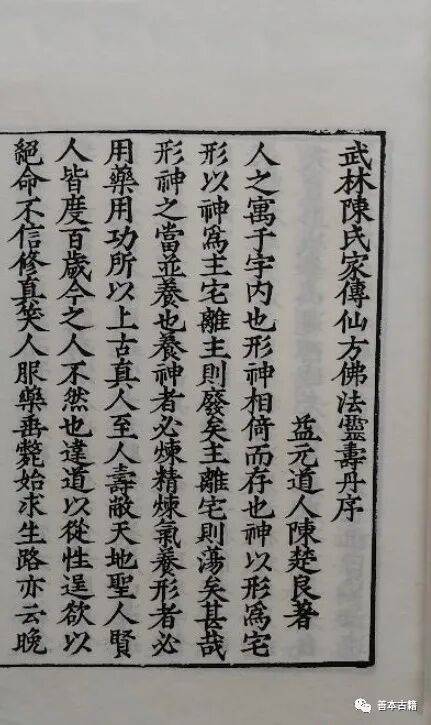 武林陳氏家傳仙方佛法靈壽丹序
益元道人陳楚良著
人之寓于宇內也形神相倚而存也神以形爲宅
形以神爲主宅離主則廢矣主離宅則蕩矣甚哉
形神之當並養也養神者必煉精煉氣養形者必
用藥用功所以上古真人至人壽敵天地聖人賢
人皆度百歲今之人不然也違道以從性逞欲以
絕命不信修真笑人服藥垂斃始求生路亦云晚
善本古籍